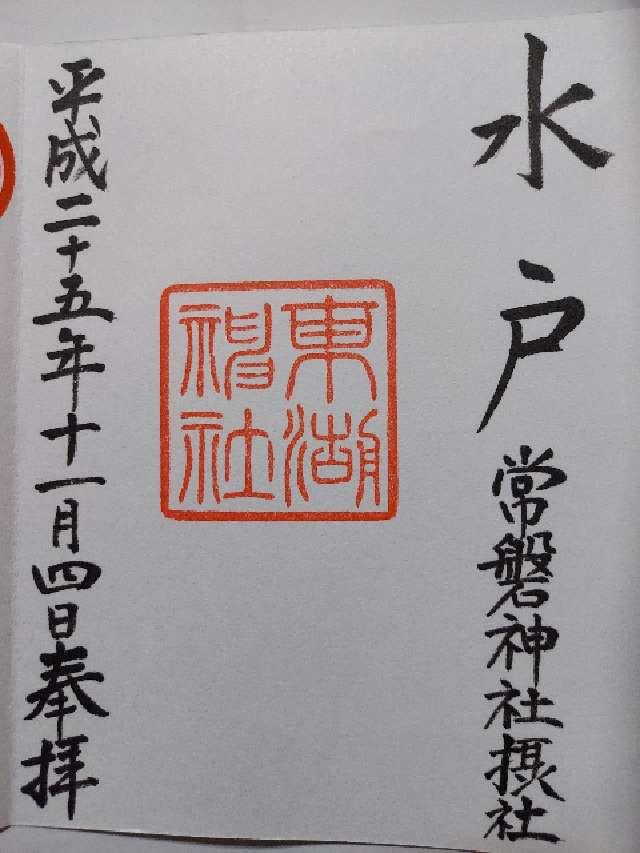 水戸常磐神社摂社
東湖
神社
平成二十五年十一月四日奉拝